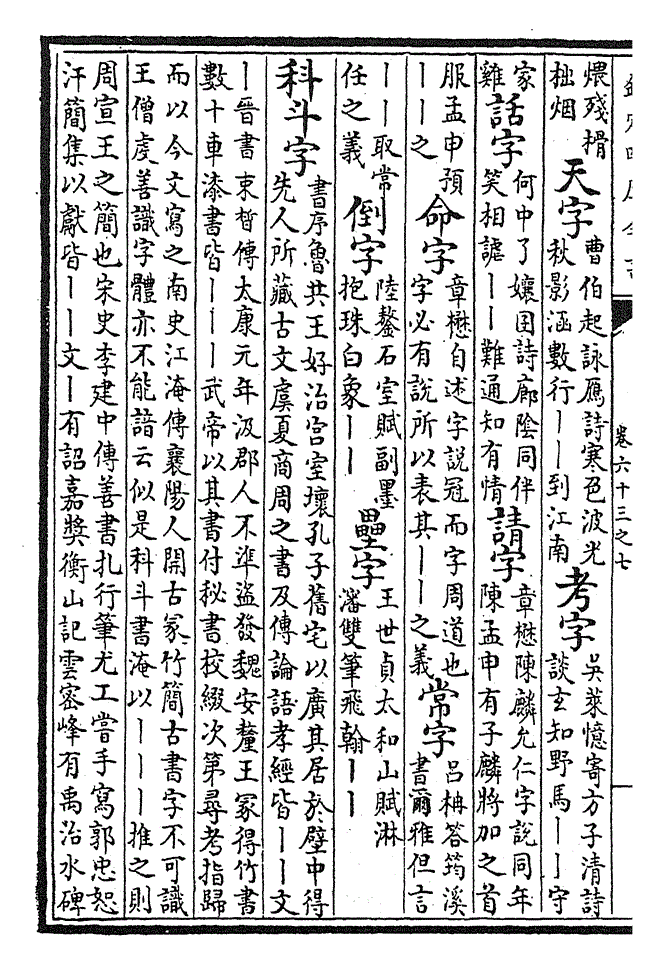 卷六十三之七
煨殘榾
柮烟
天字
曹伯起詠鴈詩寒色波光
秋影涵數行丨丨到江南
考字
吳萊憶寄方子清詩
談玄知野馬丨丨守
家
雞
話字
何中了孃囝詩廊陰同伴
笑相謔丨丨難通知有情
請字
章懋陳麟允仁字說同年
陳孟申有子麟將加之首
服孟申預
丨丨之
命字
章懋自述字說冠而字周道也
字必有說所以表其丨丨之義
常字
呂柟答筠溪
書爾雅但言
丨丨取常
任之義
倒字
陸鏊石室賦副墨
抱珠白象丨丨
壘字
王世貞太和山賦淋
瀋雙筆飛翰丨丨
科斗字
書序魯共王好治宮室壞孔子舊宅以廣其居於壁中得
先人所藏古文虞夏商周之書及傳論語孝經皆丨丨文
丨晉書束晳傳太康元年汲郡人不準盜發魏安釐王冢得竹書
數十車漆書皆丨丨丨武帝以其書付秘書校綴次第尋考指歸
而以今文寫之南史江淹傳襄陽人開古冢竹簡古書字不可識
王僧虔善識字體亦不能諳云似是科斗書淹以丨丨丨推之則
周宣王之簡也宋史李建中傳善書札行筆尤工嘗手寫郭忠恕
汗簡集以獻皆丨丨文丨有詔嘉獎衡山記雲密峰有禹治水碑